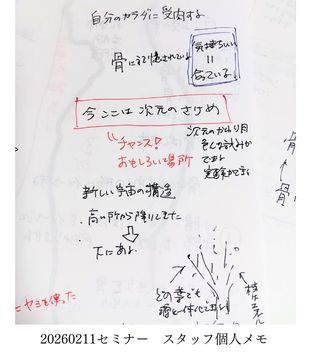 自分のカラダに受肉する
骨にまで記憶されている
気持ちいい
=
合っている
今ここは次元のさけめ
チャンス!
おもしろい場所
次元のかわり目
色んな試みが
できる
実験ができる
新しい宇宙の構造
・高い所から降りてきた
下にある
どの葉でも
枝
骨
骨
20260211セミナー スタッフ個人メモ